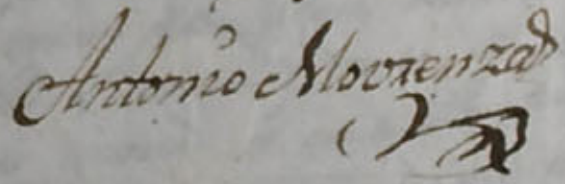 Antonio Movrenzas